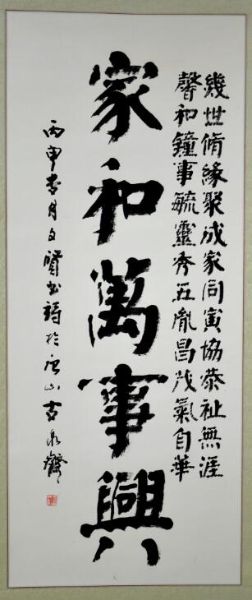 幾世脩緣聚成家同寅協恭祉無涯
馨和鐘事毓靈秀五胤昌茂氣自華
家和萬事興
丙申春月文賢書詩於唐山古泉齋